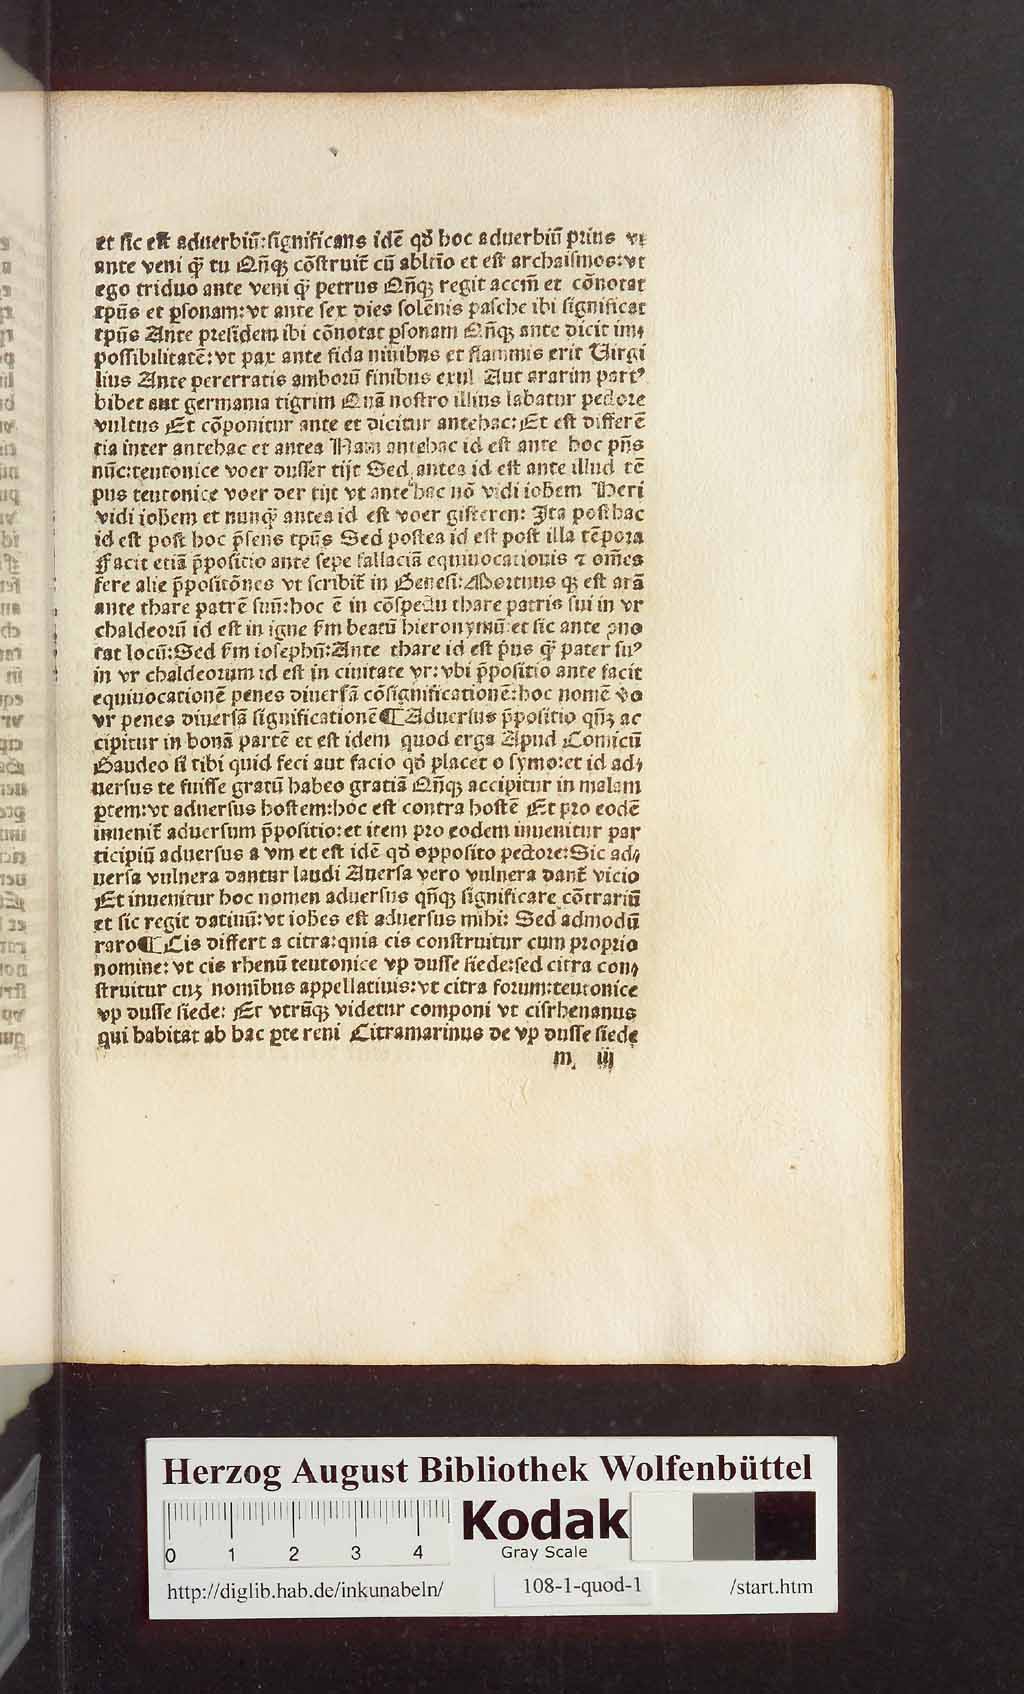 et sic est aduerbiū:significans idē qđ hoc aduerbiū prius vt
ante veni q̄ tu Qn̄qꝫ cōstruit̄ cū ablt̄io et est archaismos:vt
ego triduo ante veni q̄ petrus Qn̄qꝫ regit accm̄ et cōnotat
tpūs et ꝑsonam:vt ante sex dies solēnis pasche ibi significat
tpūs Ante presidem ibi cōnotat ꝑsonam Qn̄qꝫ ante dicit im⸗
possibilitatē:vt pax ante fida niuibus et flammis erit Virgi
lius Ante pererratis amborū finibus exul Aut ararim partꝰ
bibet aut germania tigrim Quā nostro illius labatur pectore
vultus Et cōponitur ante et dicitur antehac:Et est differē
tia inter antehac et antea Nam antehac id est ante hoc pn̄s
nūc:teutonice voer dusser tijt Sed antea id est ante illud tē
pus teutonice voer der tijt vt ante hac nō vidi iohem Heri
vidi iohem et nunq̄ antea id est voer gisteren: Ita posthac
id est post hoc p̄sens tpūs Sed postea id est post illa tēpora
Facit etiā p̄positio ante sepe fallaciā equiuocationis ⁊ om̄es
fere alie p̄positōnes vt scribit̄ in Genesi:Mortuus qꝫ est arā
ante thare patrē suū:hoc ē in cōspectu thare patris sui in vr
chaldeorū id est in igne km̄ beatū hieronymū:et sic ante ꝯno
tat locū:Sed km̄ iosephū:Ante thare id est p̄us q̄ pater suꝰ
in vr chaldeorum id est in ciuitate vr:vbi p̄positio ante facit
equiuocationē penes diuersā cōsignificationē:hoc nomē vo
vr penes diuersā significationē¶Aduersus p̄positio qn̄qꝫ ac
cipitur in bonā partē et est idem quod erga Apud Comicū
Gaudeo si tibi quid feci aut facio qđ placet o symo:et id ad⸗
uersus te fuisse gratū habeo gratiā Qn̄qꝫ accipitur in malam
ꝑtem:vt aduersus hostem:hoc est contra hostē Et pro eodē
inuenit̄ aduersum p̄positio:et item pro eodem inuenitur par
ticipiū aduersus a vm et est idē qđ opposito pectore:Sic ad⸗
uersa vulnera dantur laudi Auersa vero vulnera dant̄ vicio
Et inuenitur hoc nomen aduersus qn̄qꝫ significare cōtrariū
et sic regit datiuū:vt iohes est aduersus mihi: Sed admodū
raro¶Cis differt a citra:quia cis construitur cum proprio
nomine: vt cis rhenū teutonice vp dusse siede:sed citra con⸗
struitur cuꝫ nomībus appellatiuis:vt citra forum:teutonice
vp dusse siede: Et vtrūqꝫ videtur componi vt cisrhenanus
qui habitat ab hac ꝑte reni Citramarinus de vp dusse siede
m iij
Herzog August Bibliothek Wolfenbüttel
0 1 2 3 4
Kodak
Gray Scale
http://diglib.hab.de/inkunabeln/ 108-1-quod-1 /start.htm